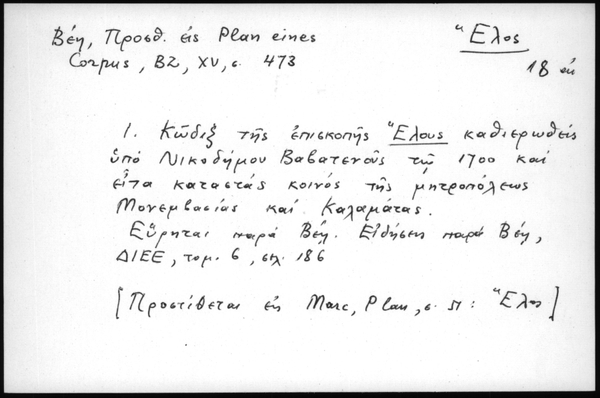 Βέη, Προσθ. εἰς Plan eines
Corpus, BZ, XV, σ. 473
Ἕλος
18 αι
1. Κῶδιξ τῆς ἐπισκοπῆς Ἕλους καθιερωθεὶς
ὑπὸ Νικοδήμου Βαβατενοῦς τῷ 1700 καὶ
εἶτα καταστὰς κοινὸς τῆς μητροπόλεως
Μονεμβασίας καὶ Καλαμάτας.
Εὕρηται παρὰ Βέη. Εἰδήσεις παρὰ Βέη,
ΔΙΕΕ, τομ. 6, σελ. 186
[Προστίθεται εἰς Marc, Plan, σ. 51: Ἕλος]